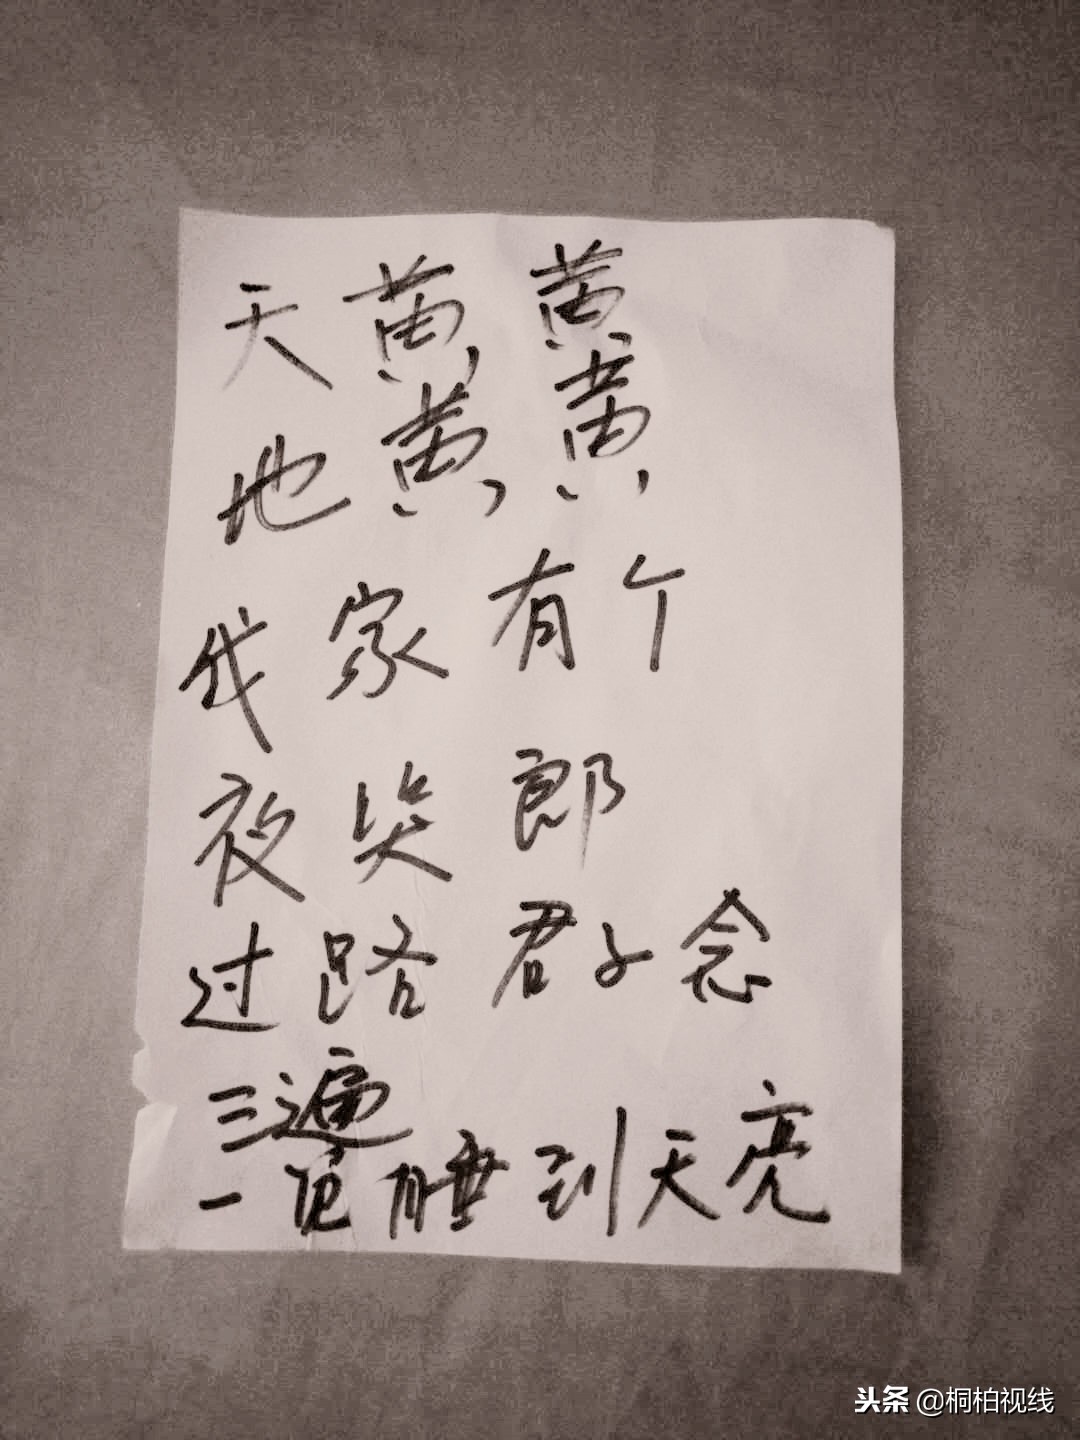 天黄黄
地黄黄,
我家有个
夜哭郎
过路君子念
三遍
一觉睡到天亮
头条 @桐柏视线